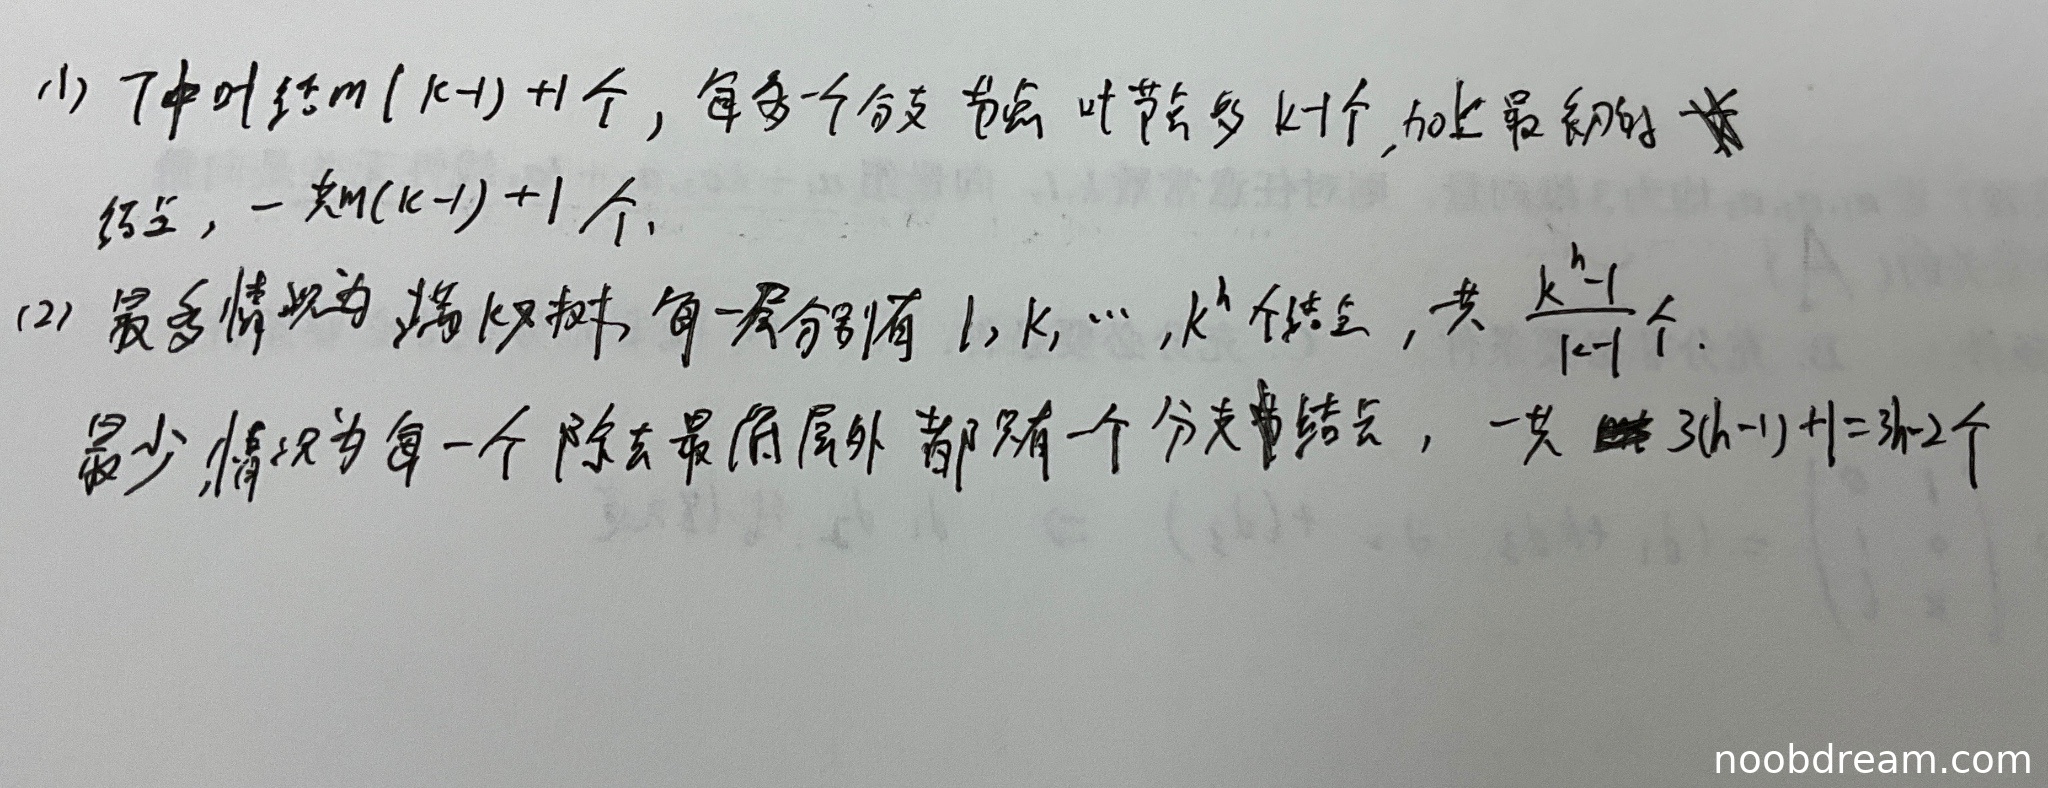 (1) T中叶结m(k-1)+1个，每多一个分支节点叶节点多k-1个，加上最初的
结点，一共m(k-1)+1个.
(2) 最多情况为满k叉树，每一层分别有1, k, …, k^h个结点，一共 (k^h-1)/(k-1) 个.
最少情况为每一个除去最底层外都只有一个分支结点，一共 3(h-1)+1=3h-2个
noobdream.com